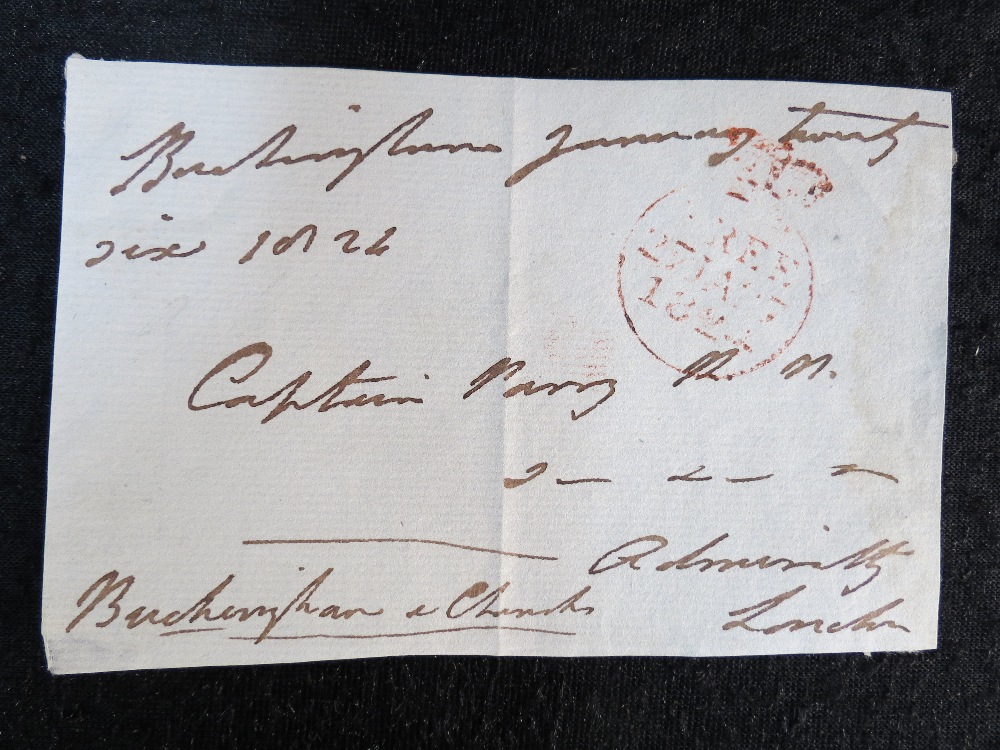 Buckingham January twenty
six 1824
FREE
27 JA 27
182
Captain Parry R. N.
Admiralty
London
Buckingham & Chandos